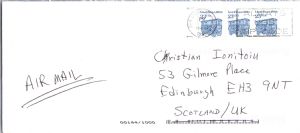 AIR MAIL
Christian Ionitoiu
53 Gilmore Place
Edinburgh EH3 9NT
SCOTLAND/UK